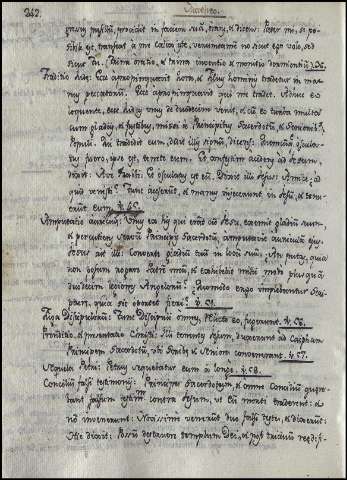 242.
Mattheo.
pusillum, procidit in faciem suam, orans, et dicens: Pater mi, si po-
sibile est, transeat a me calix iste, verumtamen no sicut ego volo, sed
sicut tu.
Traditio eius: Ecce apropinquavit hora, et filius hominis tradetur in ma-
nus peccatorum. Ecce apropinquavit qui me tradet. Adhuc eo
loquente, ecce Judas unus de duodecim venit, et cum eo turba multa
cum gladiis, et fustibus, missi a Principibus Sacerdotum, et Senioribus
Populi. qui tradidit eum, dedit illis signum, dicens: Quemcumque oscula-
tus fuero, ipse est, tenete eum. Et confestim accedens ad Jesum,
dixit: Ave Rabbi. Et osculatus est eum. Dixitq illi Jesus: Amice, ad
quid venisti? Tunc accesserunt, et manus injecerunt in Jesum, et tenue-
runt eum.
Amputatio auriculæ: Unus ex his qui erat cum Jesu, exemit gladium suum,
et percutiens servum Principis Sacerdotum, amputavit auriculam ejus
Jesus ait illi: Converte gladium tuum in locum suum. An putas, quia
non possum rogare Patrem meum, et exhibebit mihi modo plus quam
duodecim legiones Angelorum? Quomodo ergo implebuntur Scrip-
turæ, quia sic oportet fieri?
Fuga Discipulorum: Tunc Discipuli omnes, relicto eo, fugerunt. v. 56.
Proditio, et presentatio Christi: Illi tenentes Jesum, duxerunt ad Caipham
Principem Sacerdotum, ubi Scribæ et Seniores convenerant. v. 57.
Sequela Petri: Petrus sequebatur eum a longe. v. 58.
Concilium falsi testimonij: Principes Sacerdotum, et omne Concilium quere-
bant falsum testim. contra Jesum, ut eum morti traderent: et
no invenerunt: Novissime venerunt duo falsi testes, et dixerunt:
Hic dixit: Possum destruere templum Dei, et post triduum reedifi-